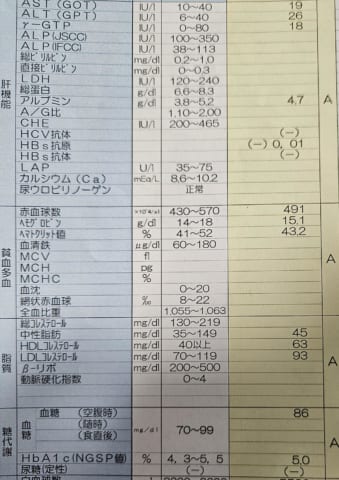 AST(GOT) IU/l 10~40 19
ALT(GPT) IU/l 6~40 26
γ-GTP IU/l 0~80 18
ALP(JSCC) IU/l 100~350
ALP(IFCC) IU/l 38~113
総ビリルビン mg/dl 0.2~1.0
直接ビリルビン mg/dl 0~0.3
LDH IU/l 120~240
総蛋白 g/dl 6.6~8.3
アルブミン g/dl 3.8~5.2 4.7
A/G比 1.10~2.00
CHE IU/l 200~465
HCV抗体 (-)
HBs抗原 (-)0,01
HBs抗体 (-)
LAP U/l 35~75
カルシウム(Ca) mEq/L 8.6~10.2
尿ウロビリノーゲン 正常
肝機能
A
赤血球数 430~570 491
ヘモグロビン g/dl 14~18 15.1
ヘマトクリット値 % 41~52 43.2
血清鉄 μg/dl 60~180
MCV fl
MCH pg
MCHC %
血沈 0~20
網状赤血球 ‰ 8~22
全血比重 1.055~1.063
貧血多血
A
総コレステロール mg/dl 130~219
中性脂肪 mg/dl 35~149 45
HDLコレステロール mg/dl 40以上 63
LDLコレステロール mg/dl 70~119 93
β-リポ mg/dl 200~500
動脈硬化指数 0~4
脂質
A
血糖 (空腹時) 86
血糖 (随時) mg/dl 70~99
(食直後)
HbA1c(NGSP値) % 4,3~5,5 5.0
尿糖(定性) (-) (-)
糖代謝
A
白血球数